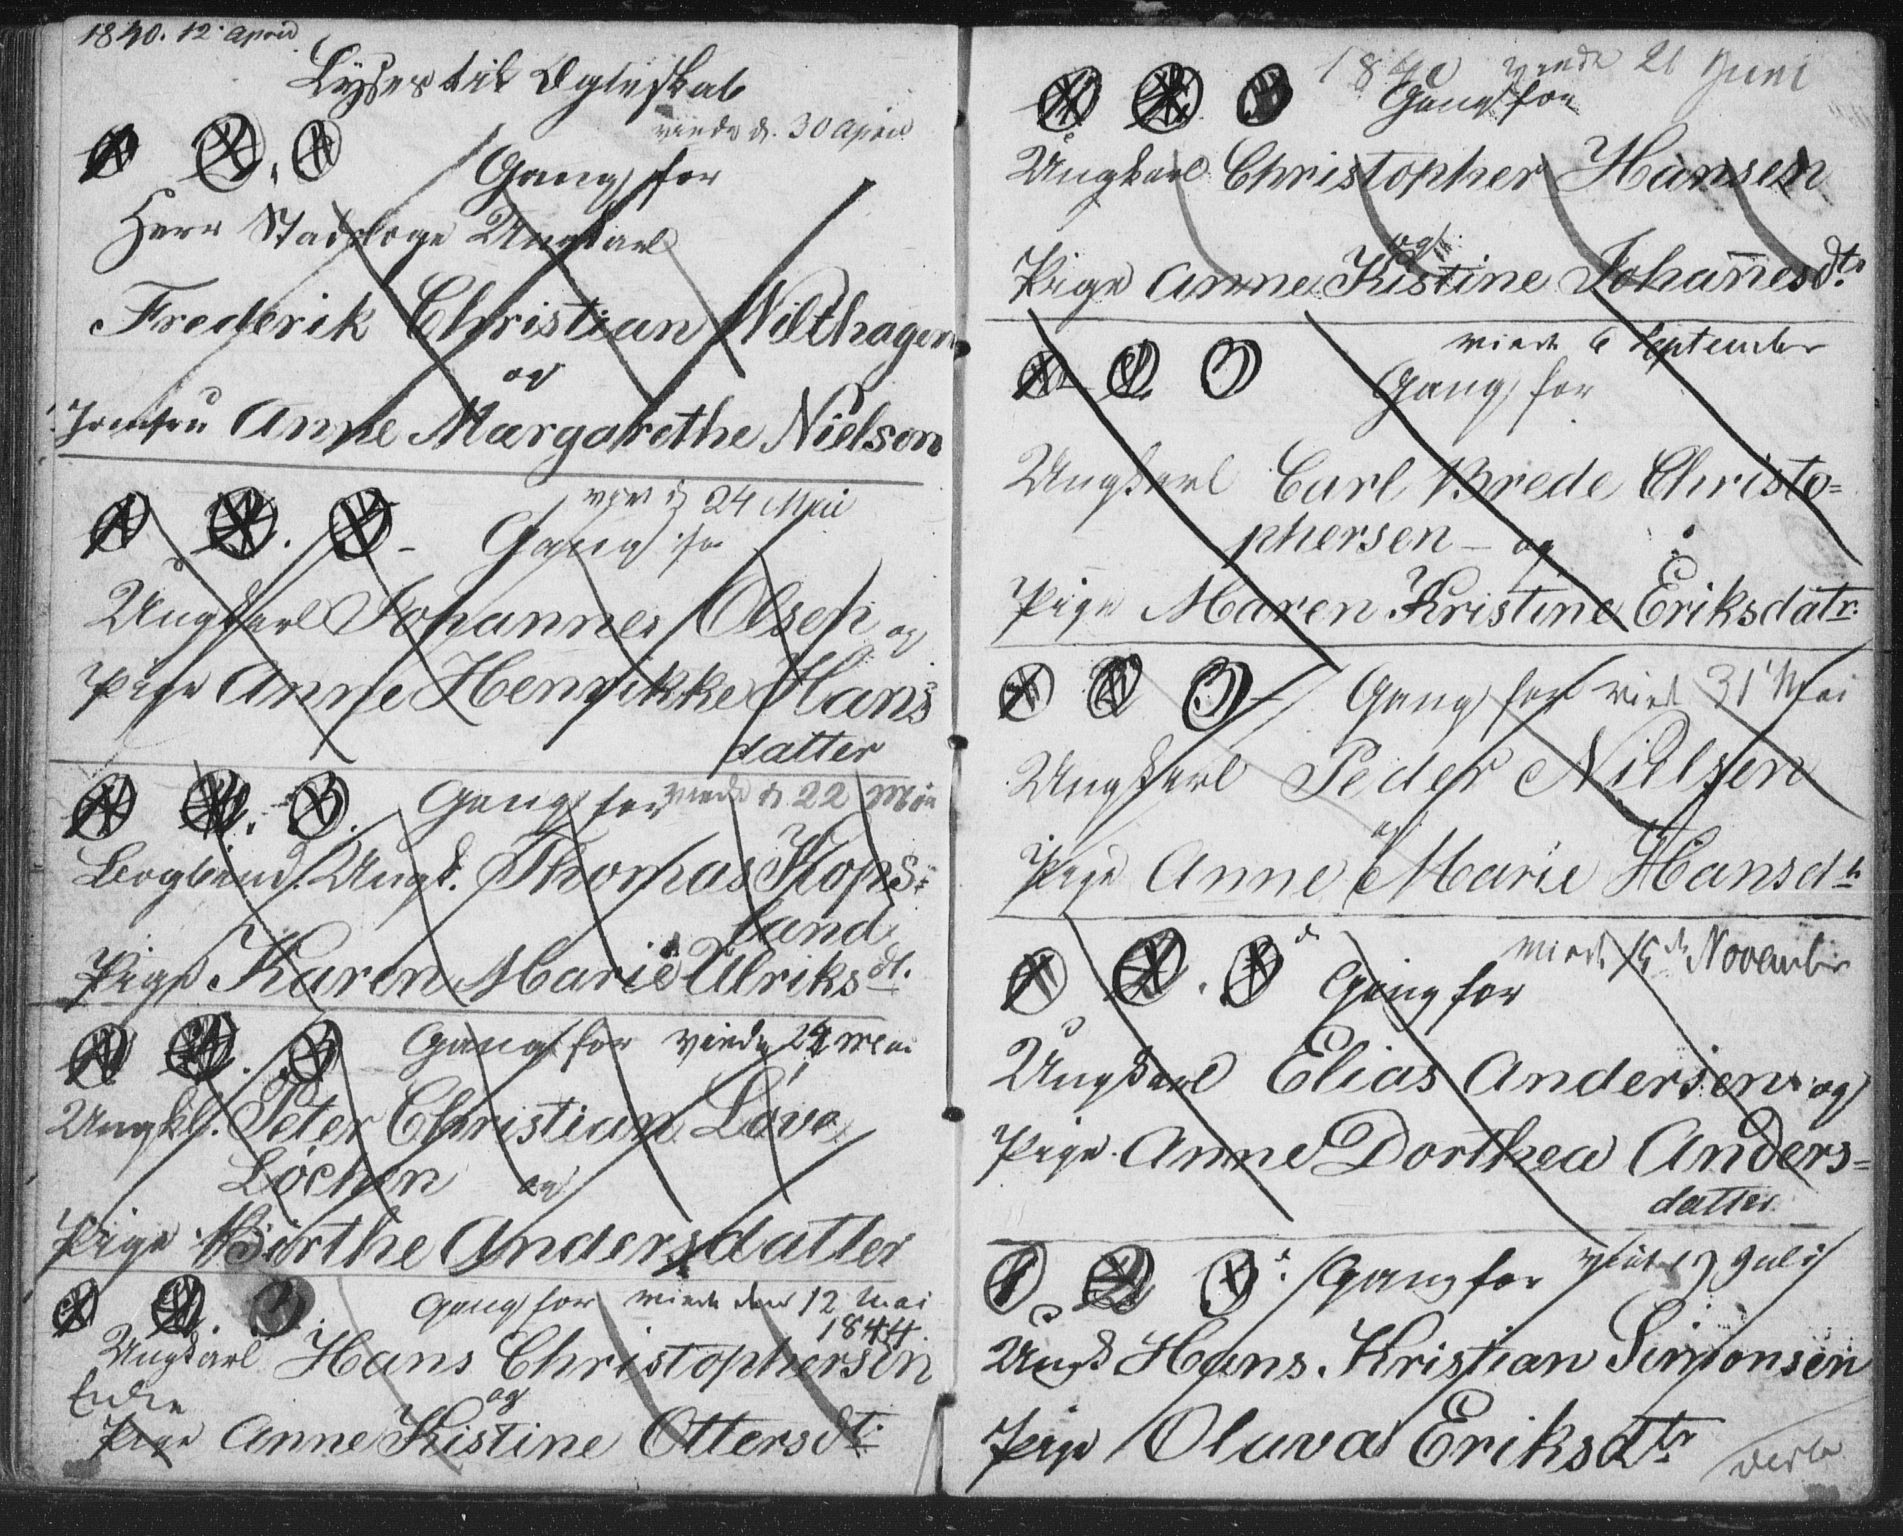 1840. 12. April
Lyses til Ægteskab
viede d. 30 April
1 2. 3 Gang for
Herr Ungkarl
Frederik Christian Wilthagen
og
Jomfru Anne Margarethe Nielsen
viet d 24 Mai
1 2. 3 - Gang for
Ungkarl Johannes Olsen og
Pige Anne Henrikke Hans
datter
1 2. 3. Gang for viede d 22 Mai
Ungk. Thomas Kops=
land
Pige Karen Marie Ulriksdt.
1 2. 3 Gang for viede 24 Mai
Ungkl. Peter Christian Løve
Løchen og
Pige Birthe Andersdatter
1 2. 3. Gang for viede den 12 Mai
1844.
Ungkarl Hans Christophersen
og
Enke
Pige Anne Kistine Ottersdt.
1840 viede 21 Juni
1 2 3 Gang for
Ungkarl Christopher Hansen
og
Pige Anne Kistine Johannesdtr.
viede 6 September
1 2. 3 Gang for
Ungkarl Carl Brede Christo=
phersen - og
Pige Maren Kristine Eriksdatr.
1 2 3 - Gang for viet 31 Mai
Ungkarl Peder Nielsen
og
Pige Anne Marie Hansdtr
viede 15 November
1 2. 3 Gang for
Ungkarl Elias Andersen og
Pige Anne Dorthea Anders=
datter
1 2 3 Gang for viet 19 Juli
Ungk Hans Kristian Simonsen
Pige Oluva Eriksdtr
verte